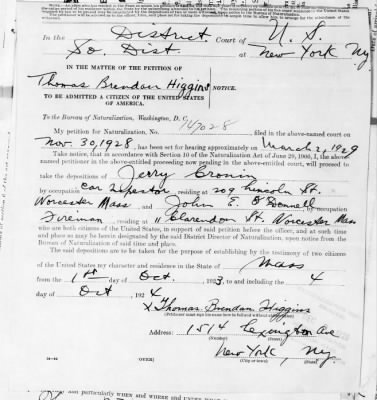 In the District Court of U. S.
So. Dist. at New York Ny
IN THE MATTER OF THE PETITION OF
Thomas Brendan Higgins NOTICE.
TO BE ADMITTED A CITIZEN OF THE UNITED STATES
OF AMERICA.
To the Bureau of Naturalization, Washington, D. C.
My petition for Naturalization, No. 147028 filed in the above-named court on
Nov. 30, 1928, has been set for hearing approximately on March 2, 1929
Take notice, that in accordance with Section 10 of the Naturalization Act of June 29, 1906, I, the above-
named petitioner in the above-entitled proceeding now pending in the above-entitled court, will proceed
to take the depositions of Jerry Cronin
by occupation Car Inspector residing at 209 Lincoln St.
Worcester Mass and John E. O'Donnell by occupation
Fireman, residing at 11 Clarendon St. Worcester Mass
who are both citizens of the United States, in support of said petition before the officer, and at such time
and place as may be herein designated by the said District Director of Naturalization, upon notice from the
Bureau of Naturalization of said time and place.
The said depositions are to be taken for the purpose of establishing by the testimony of two citizens
of the United States my character and residence in the State of Mass
from the 1st day of Oct. 1923, to and including the 4
day of Oct 1924
x Thomas Brendan Higgins
(Petitioner must sign his name here in full and without abbreviation)
Address: 1514 Lexington Ave
(Number) (Street)
New York, Ny.
(City or town) (State)
(OVER)